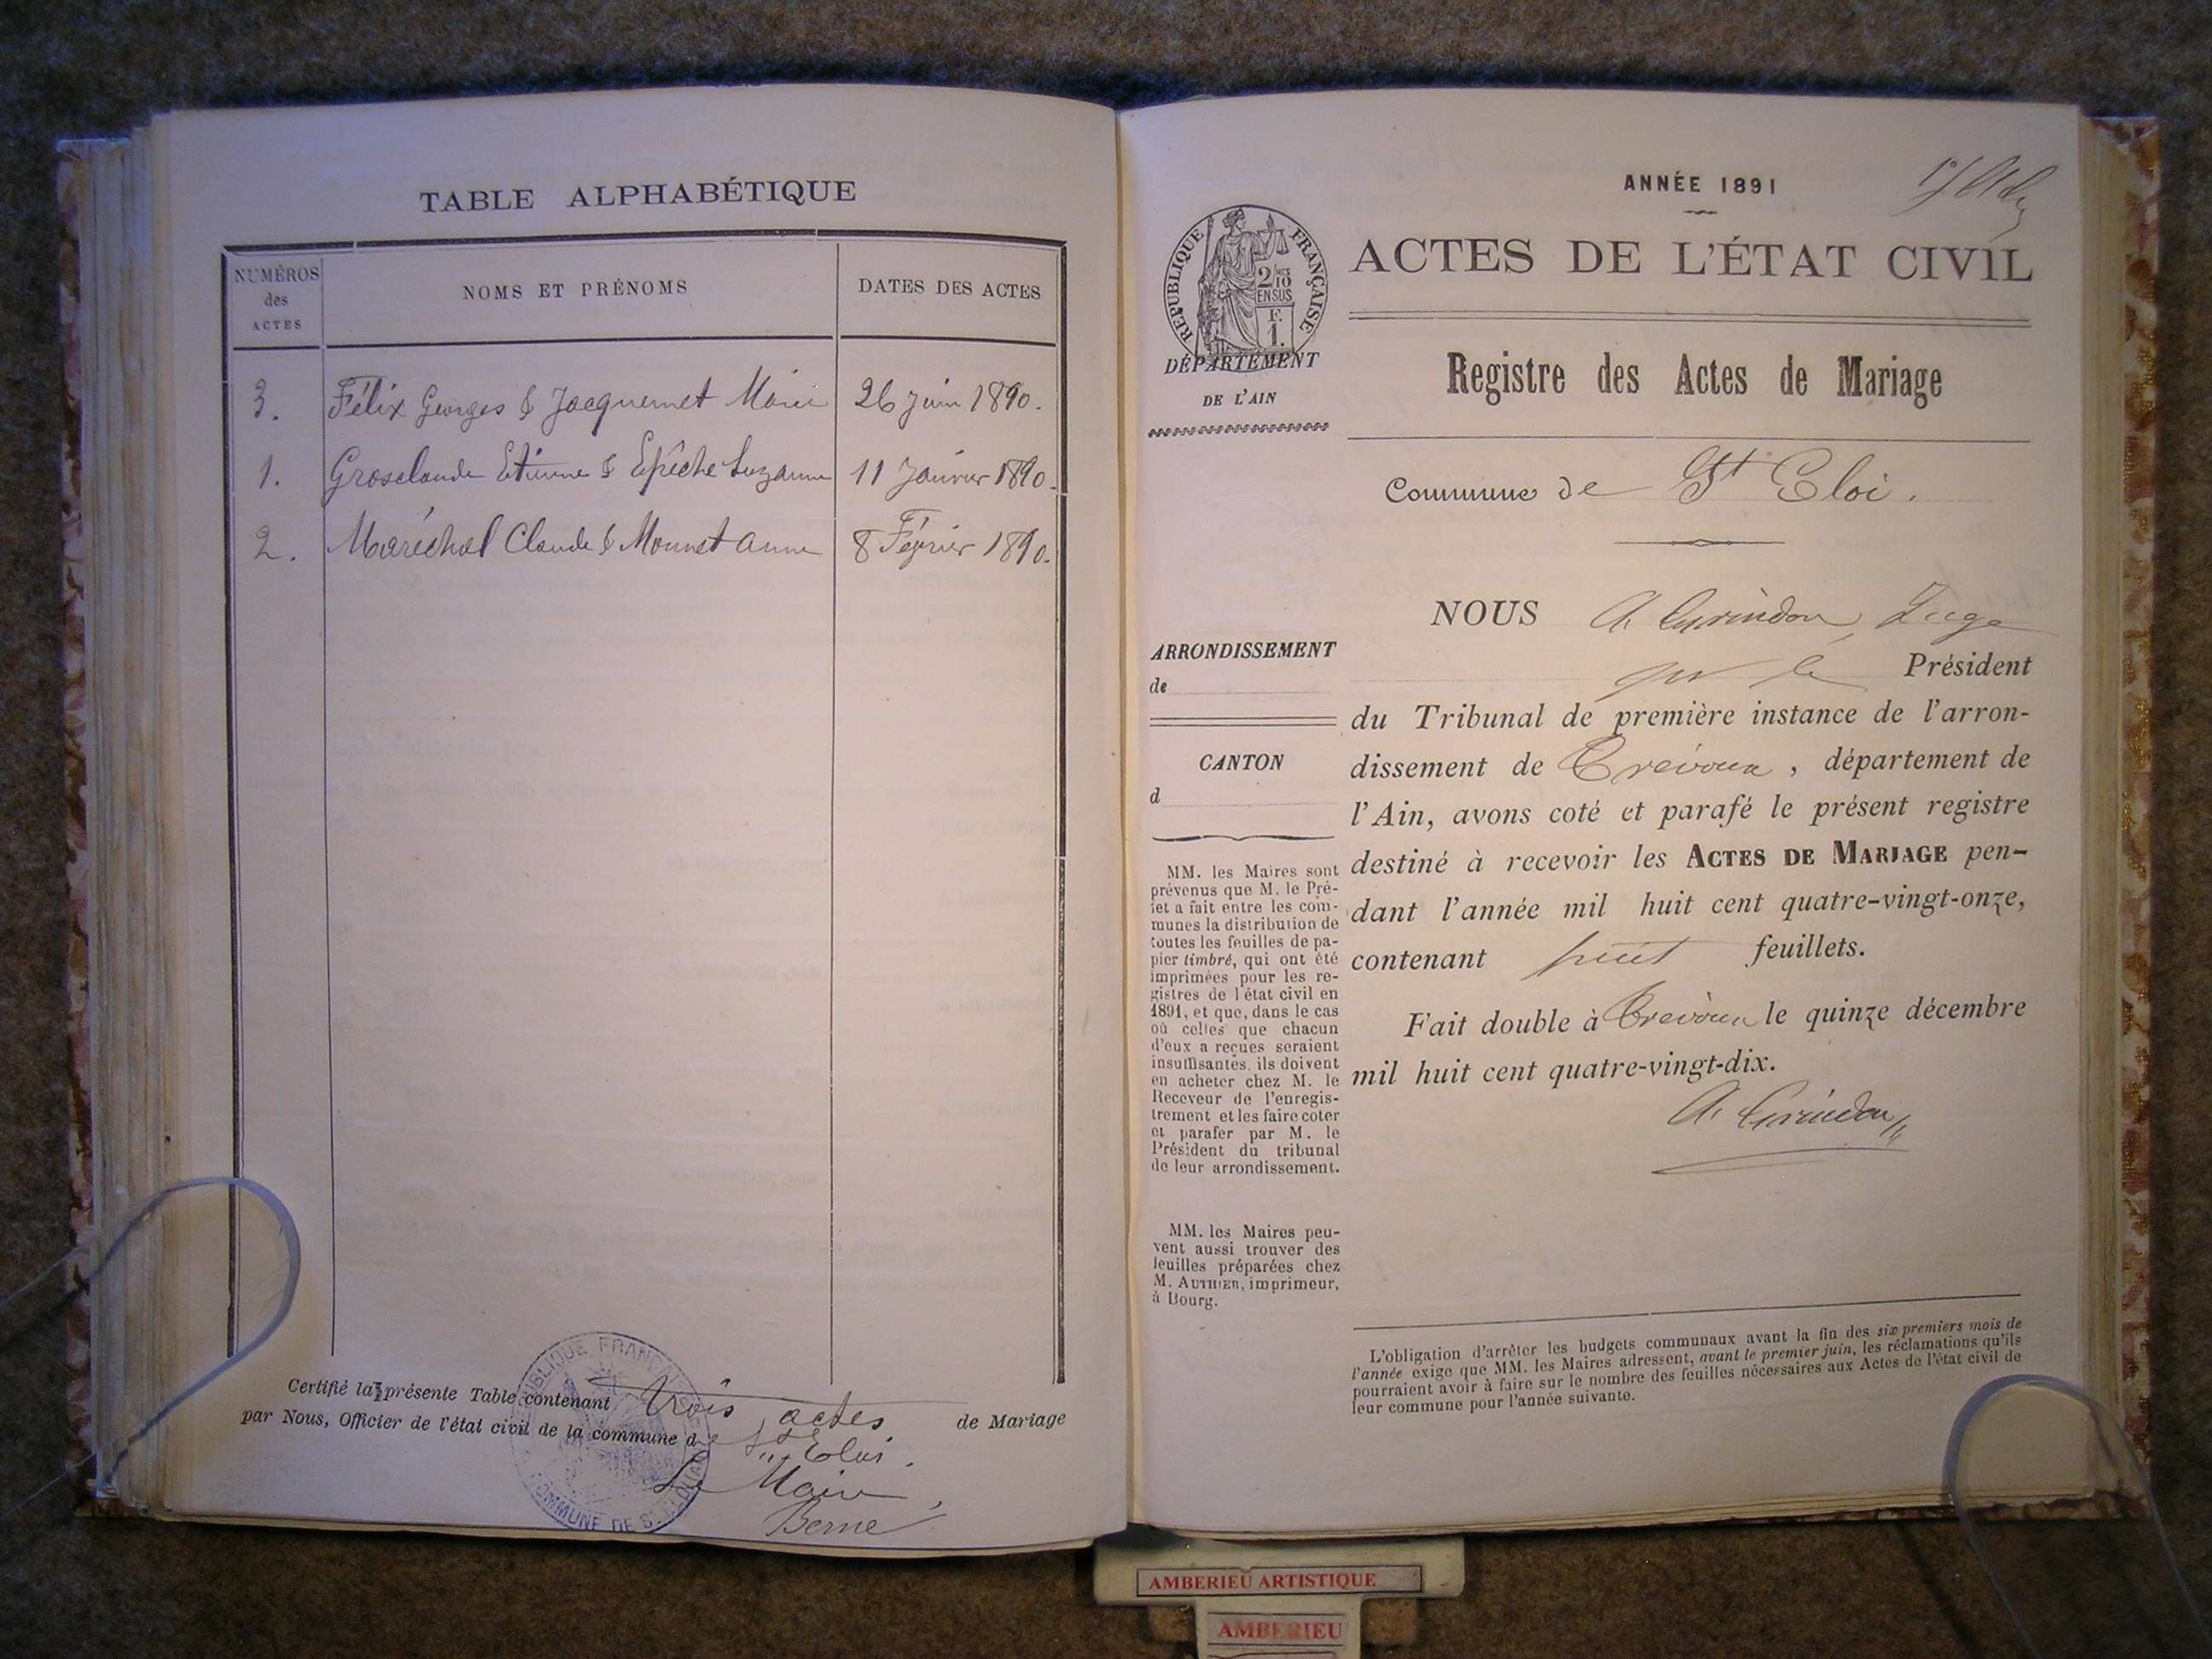 TABLE ALPHABÉTIQUE
NUMÉROS
des
ACTES
NOMS ET PRÉNOMS
DATES DES ACTES
3. Félix Georges & Jacquemet Marie 26 juin 1890.
1. Grosclaude Etienne & Epêche Suzanne 11 Janvier 1890.
2. Maréchal Claude & Monnet Anne 8 Février 1890.
Certifié la présente Table contenant trois actes de Mariage
par Nous, Officier de l'état civil de la commune de St Eloi.
Le Maire,
Berne
ANNÉE 1891
RÉPUBLIQUE FRANÇAISE
2/10
EN SUS
F.
1.
ACTES DE L'ÉTAT CIVIL
DÉPARTEMENT
DE L'AIN
Registre des Actes de Mariage
Commune de St Eloi.
NOUS Juge
Président
du Tribunal de première instance de l'arron-
dissement de Trévoux, département de
l'Ain, avons coté et parafé le présent registre
destiné à recevoir les ACTES DE MARIAGE pen-
dant l'année mil huit cent quatre-vingt-onze,
contenant huit feuillets.
Fait double à Trévoux le quinze décembre
mil huit cent quatre-vingt-dix.
ARRONDISSEMENT
de
CANTON
d
MM. les Maires sont
prévenus que M. le Pré-
fet a fait entre les com-
munes la distribution de
toutes les feuilles de pa-
pier timbré, qui ont été
imprimées pour les re-
gistres de l'état civil en
1891, et que, dans le cas
où celles que chacun
d'eux a reçues seraient
insuffisantes, ils doivent
en acheter chez M. le
Receveur de l'enregis-
trement et les faire coter
et parafer par M. le
Président du tribunal
de leur arrondissement.
MM. les Maires peu-
vent aussi trouver des
feuilles préparées chez
M. AUTHIER, imprimeur,
à Bourg.
L'obligation d'arrêter les budgets communaux avant la fin des six premiers mois de
l'année exige que MM. les Maires adressent, avant le premier juin, les réclamations qu'ils
pourraient avoir à faire sur le nombre des feuilles nécessaires aux Actes de l'état civil de
leur commune pour l'année suivante.
AMBERIEU ARTISTIQUE
AMBERIEU